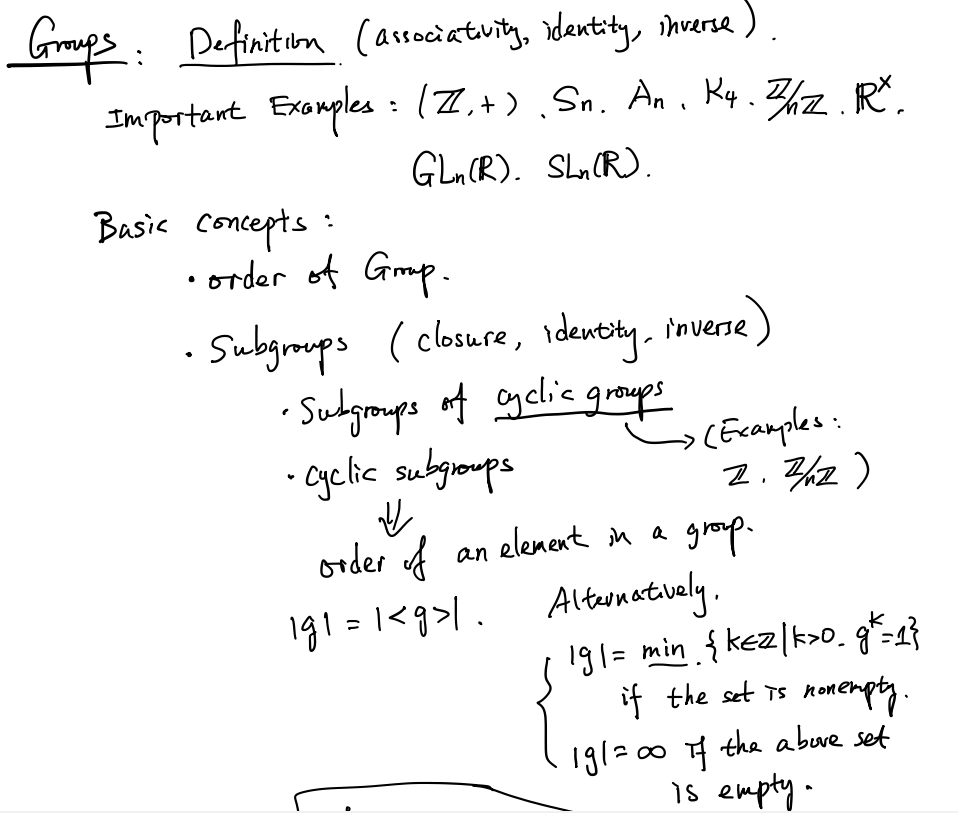 Groups : Definition. (associativity, identity, inverse).
Important Examples : (ℤ,+) . Sn. An . K4 . ℤ/nℤ . ℝ^×.
GLn(ℝ). SLn(ℝ).
Basic concepts :
• order of Group.
• Subgroups (closure, identity, inverse)
• Subgroups of cyclic groups
→ (Examples :
ℤ . ℤ/nℤ )
• cyclic subgroups
⇓
order of an element in a group.
|g| = |<g>| . Alternatively.
|g| = min. {k∈ℤ | k>0. g^k=1}
if the set is nonempty.
|g| = ∞ if the above set
is empty.